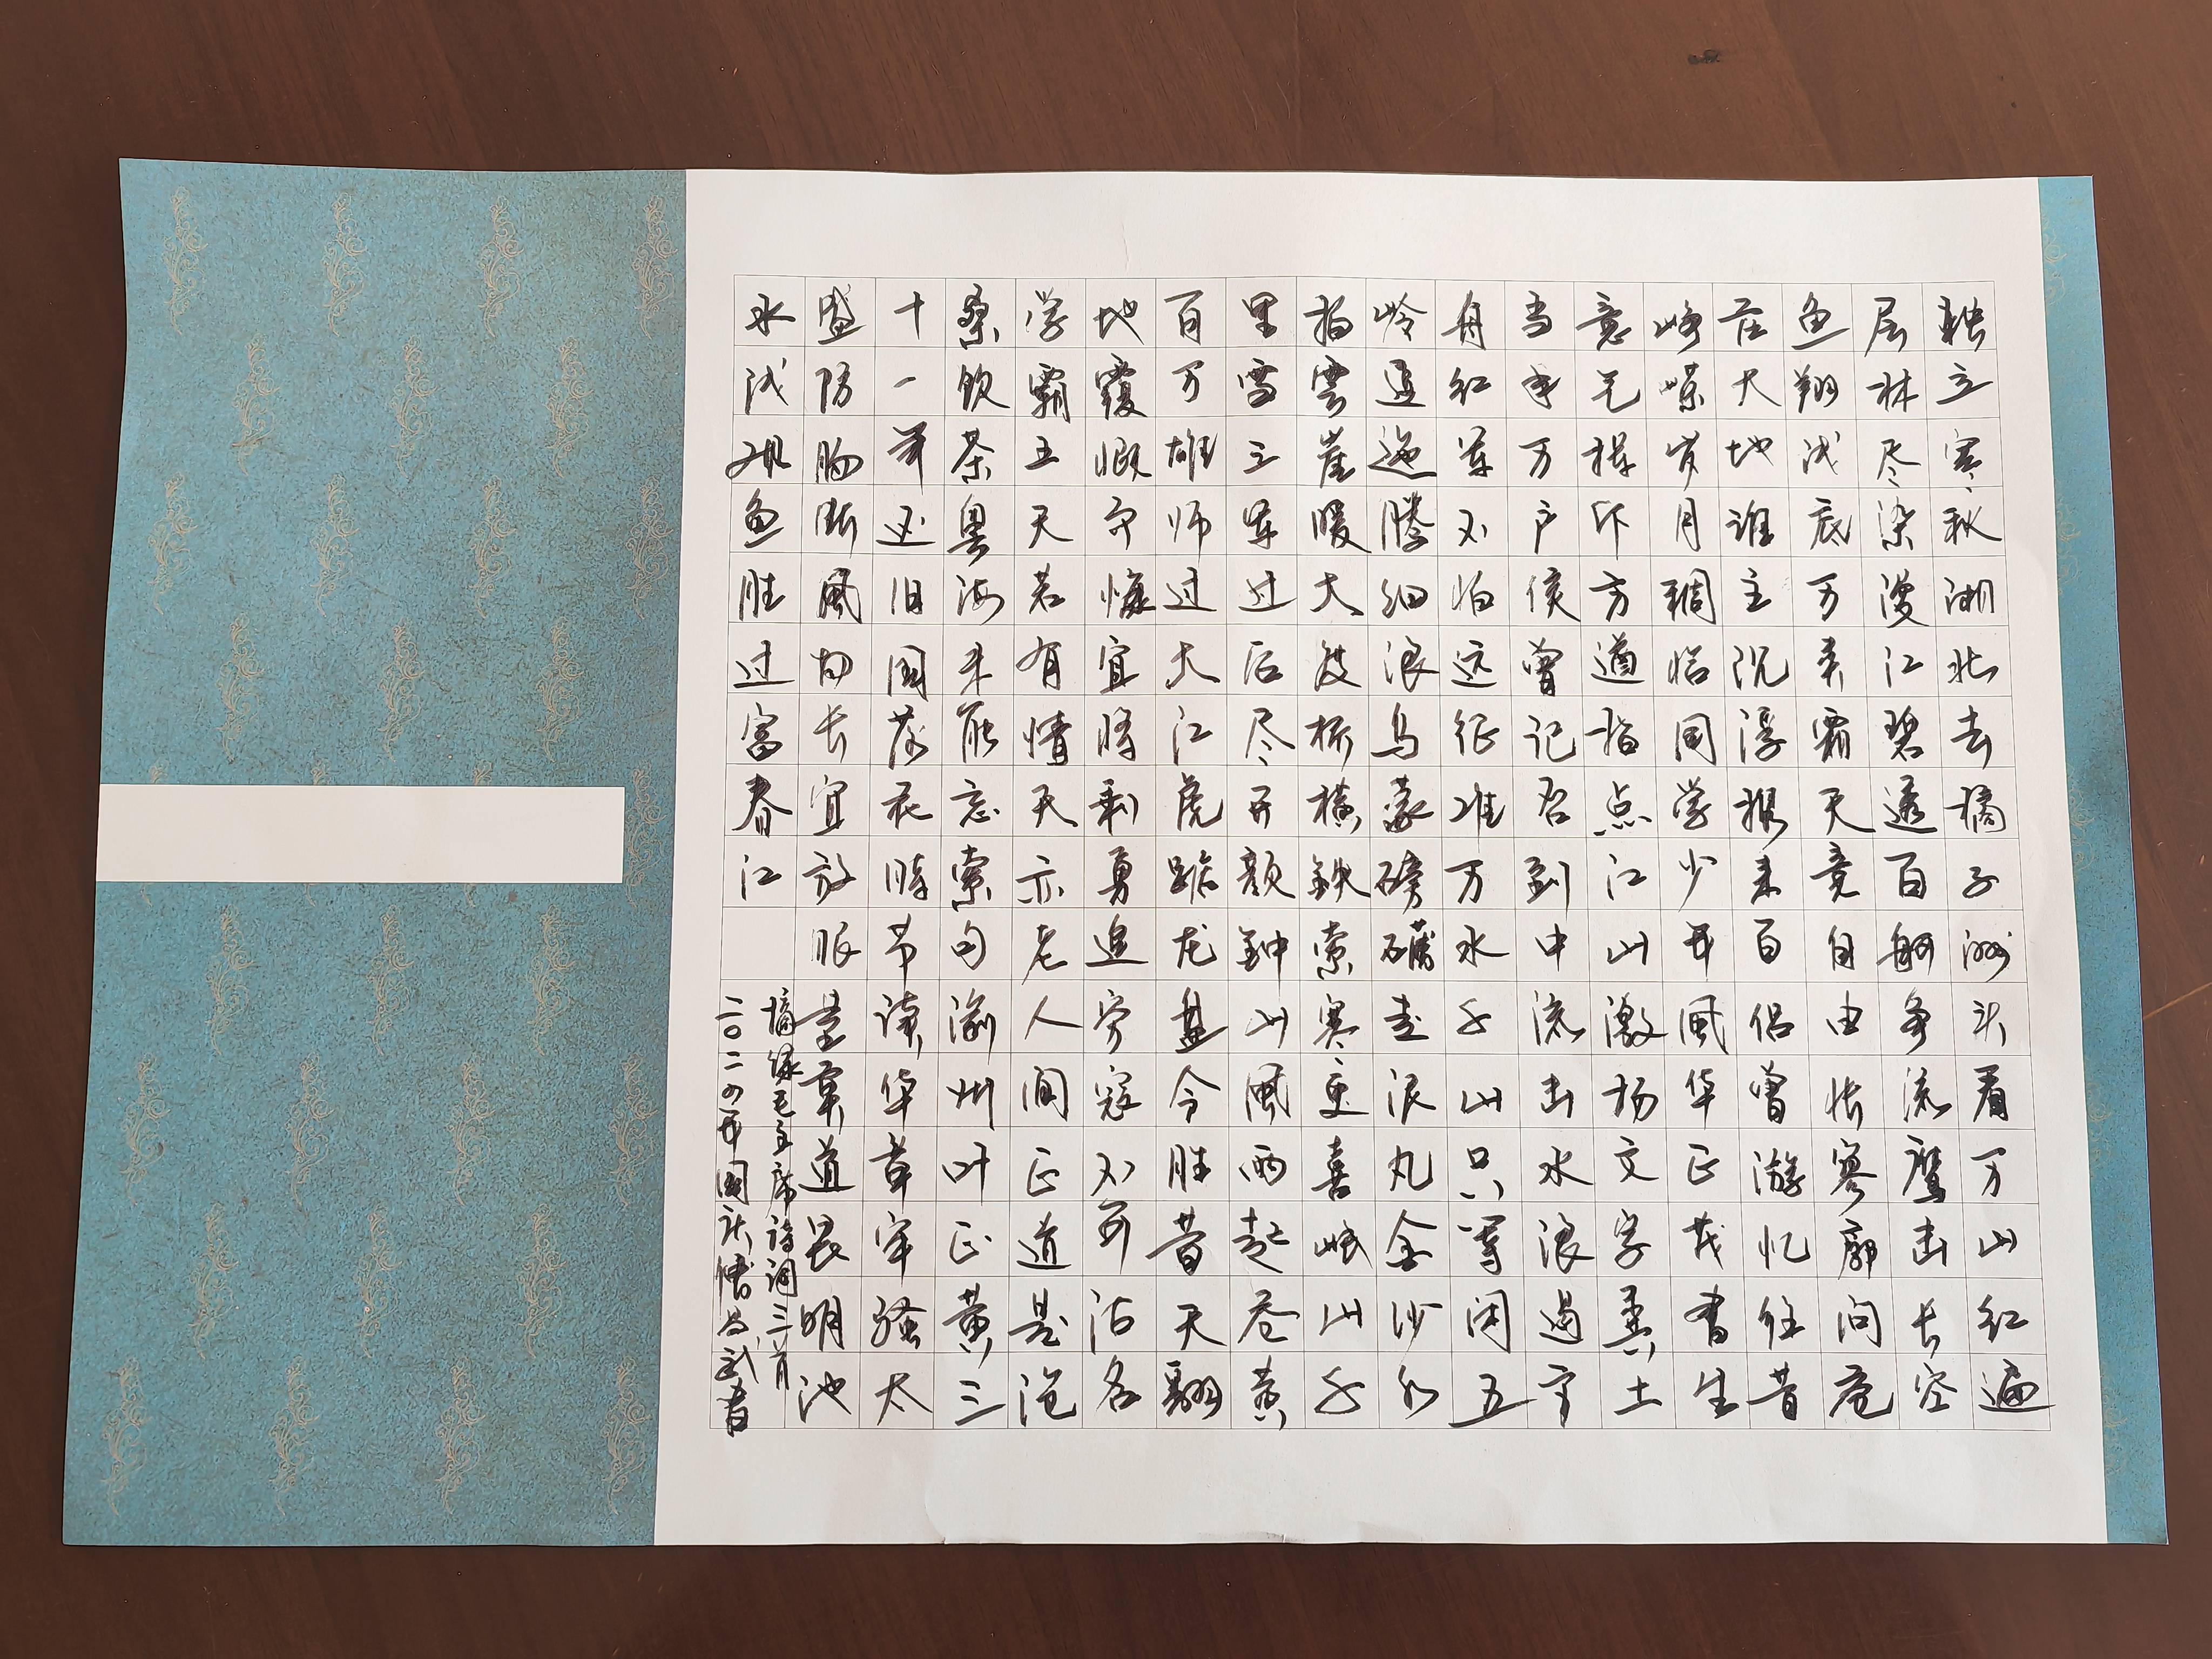 独立寒秋湘北去橘子洲头看万山红遍
层林尽染漫江碧透百舸争流鹰击长空
鱼翔浅底万类霜天竞自由怅寥廓问苍
茫大地谁主沉浮携来百侣曾游忆往昔
峥嵘岁月稠恰同学少年风华正茂书生
意气挥斥方遒指点江山激扬文字粪土
当年万户侯曾记否到中流击水浪遏飞
舟红军不怕远征难万水千山只等闲五
岭逶迤腾细浪乌蒙磅礴走泥丸金沙水
拍雲崖暖大渡桥横鉄索寒更喜岷山千
里雪三军过后尽开颜钟山风雨起苍黄
百万雄师过大江虎踞龙盘今胜昔天翻
地覆慨而慷宜将剩勇追穷寇不可沽名
学霸王天若有情天亦老人间正道是沧
桑饮茶粤海未能忘索句渝州叶正黄三
十一年还旧国落花时节读华章牢骚太
盛防肠断风物长宜放眼量莫道昆明池
水浅观鱼胜过富春江
摘录毛主席诗词三首
二〇二四年国庆